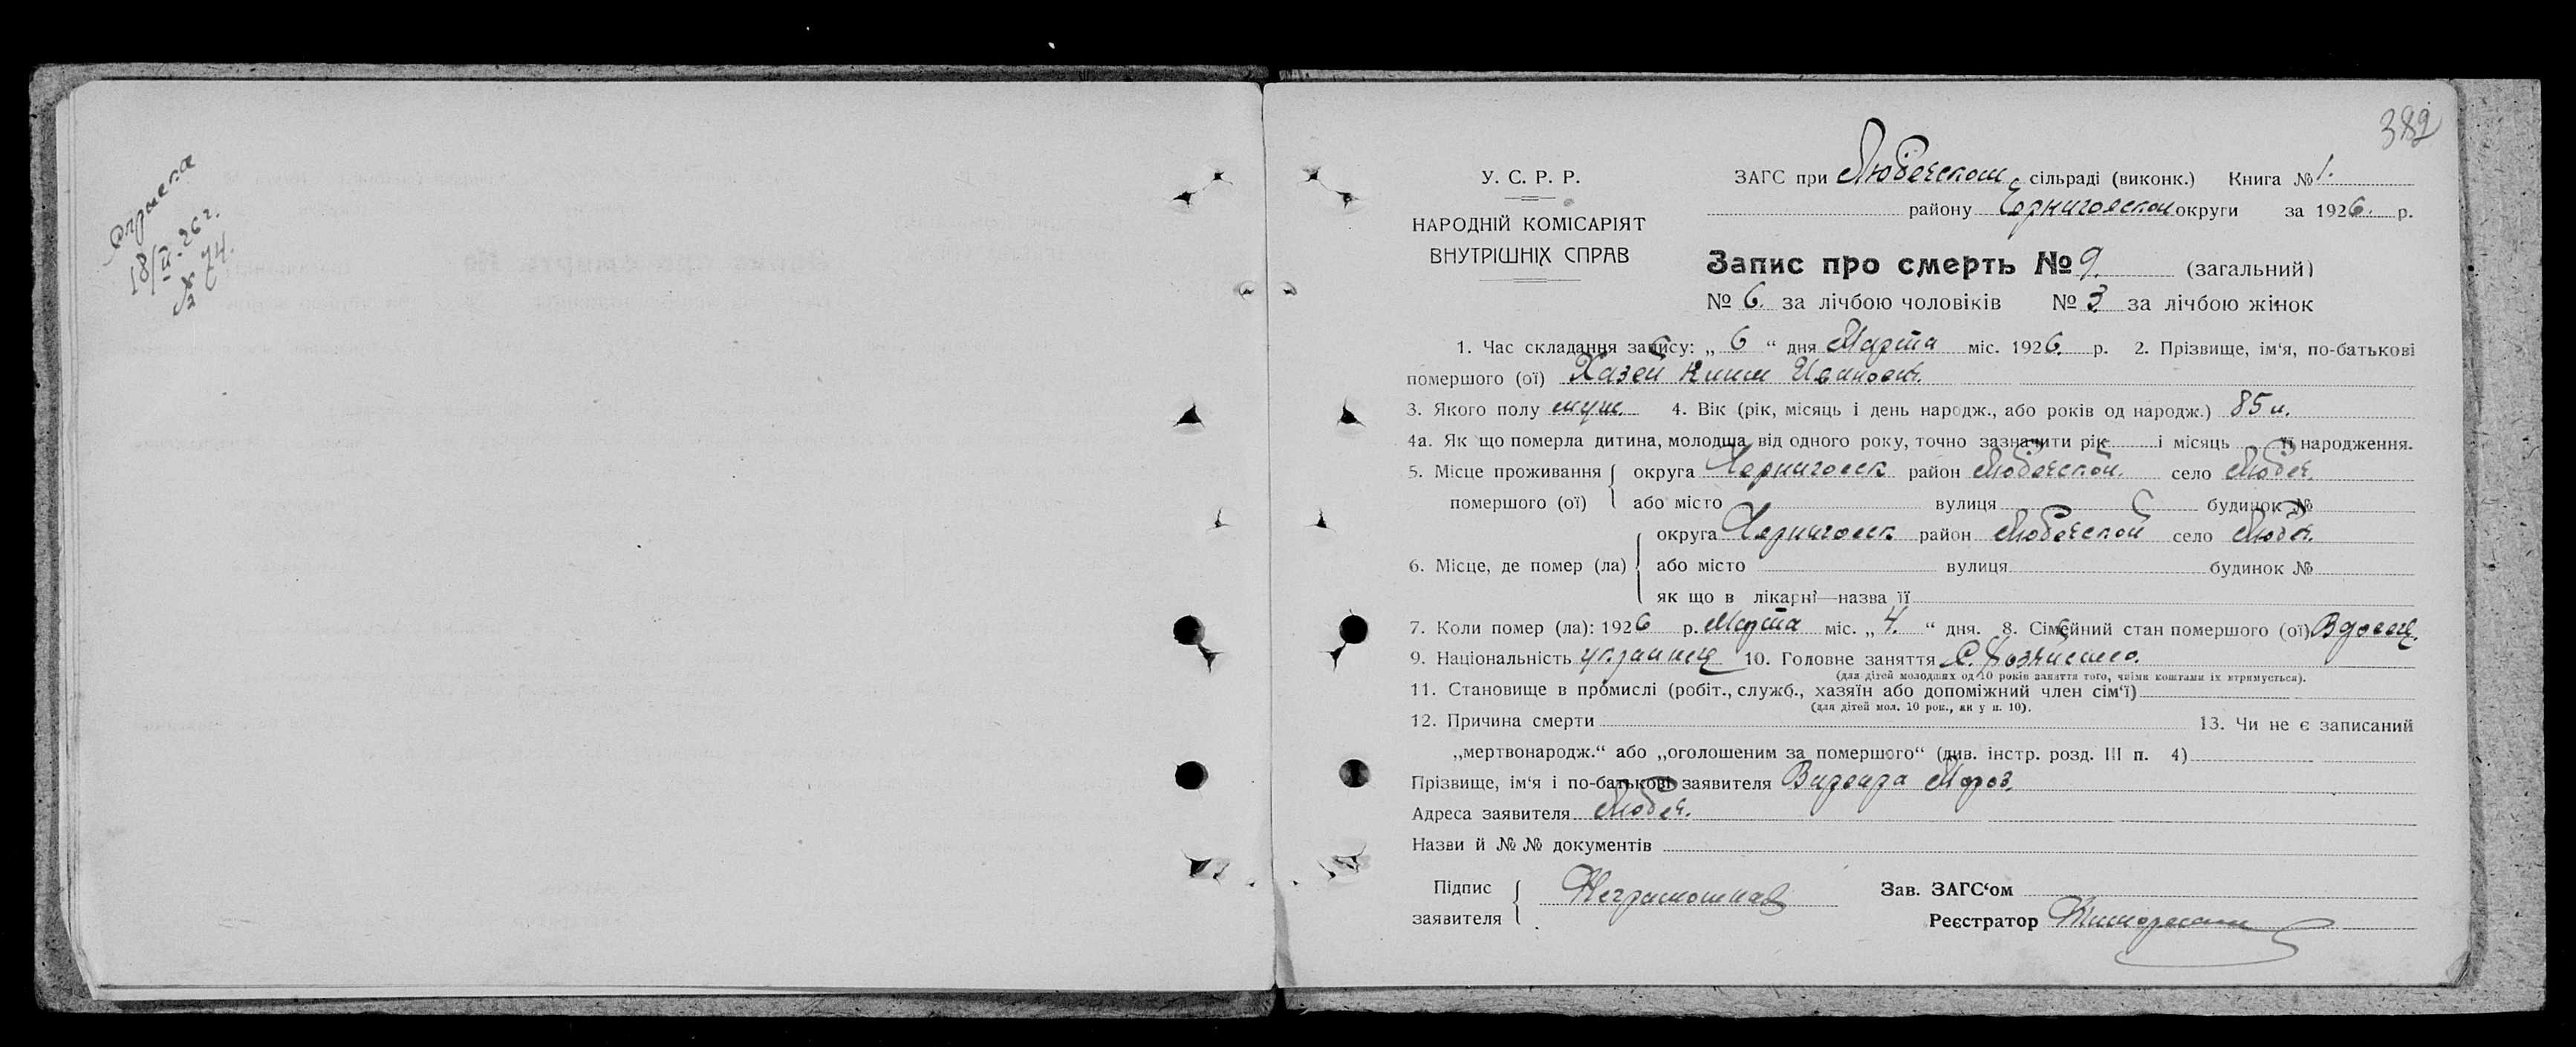 18/II-26 г.
№ 74.
382
У. С. Р. Р.
НАРОДНІЙ КОМІСАРІЯТ
ВНУТРІШНІХ СПРАВ
ЗАГС при Любечском сільраді (виконк.) Книга № 1.
району Черниговской округи за 1926. р.
Запис про смерть № 9. (загальний)
№ 6. за лічбою чоловіків № 3 за лічбою жінок
1. Час складання запису: „ 6 “ дня Марта міс. 1926. р. 2. Прізвище, ім'я, по-батькові
помершого (ої) Хазей Ивинович.
3. Якого полу муж. 4. Вік (рік, місяць і день народж., або років од народж.) 85 л.
4а. Як що померла дитина, молодша від одного року, точно зазначити рік і місяць її народження.
5. Місце проживання округа Черниговск район Любечской. село Любеч.
помершого (ої) або місто вулиця будинок №
округа Черниговск район Любечской село Любеч.
6. Місце, де помер (ла) або місто вулиця будинок №
як що в лікарні—назва її
7. Коли помер (ла): 1926 р. Марта міс. „ 4. “ дня. 8. Сімейний стан помершого (ої) Вдовец.
9. Національність украинец 10. Головне заняття С. Хозяйство.
(для дітей молодших од 10 років заняття того, чиїми коштами їх втримується).
11. Становище в промислі (робіт., служб., хазяїн або допоміжний член сім'ї)
(для дітей мол. 10 рок., як у п. 10).
12. Причина смерти 13. Чи не є записаний
„мертвонародж.“ або „оголошеним за помершого“ (див. інстр. розд. III п. 4)
Прізвище, ім'я і по-батькові заявителя Мороз.
Адреса заявителя Любеч.
Назви й № № документів
Підпис Неграмотная Зав. ЗАГС'ом
заявителя Реєстратор